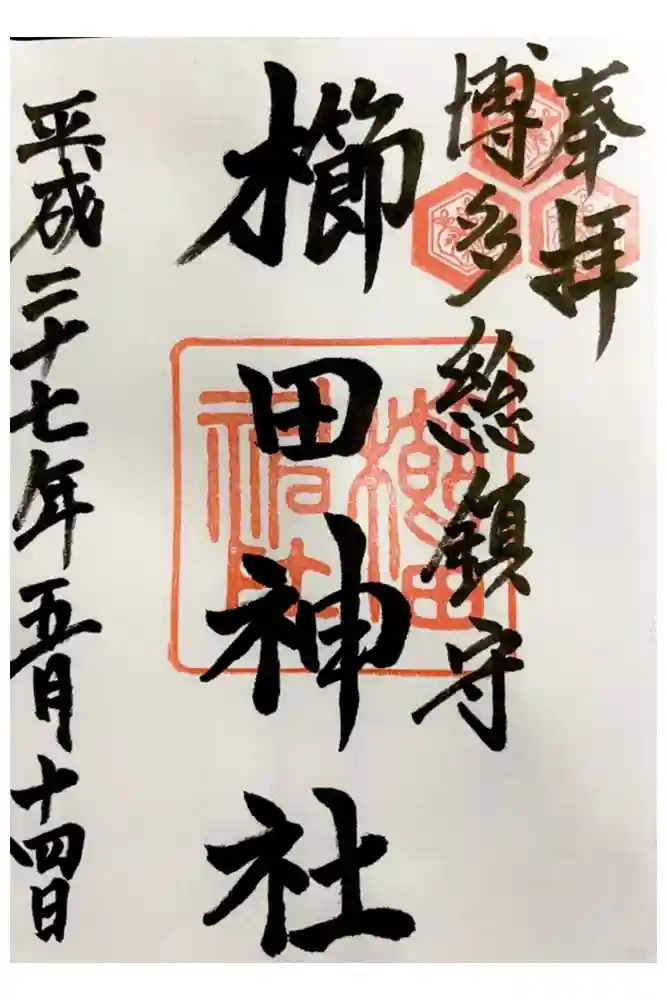 奉拝
博多総鎮守
櫛田神社
平成二十七年五月十四日